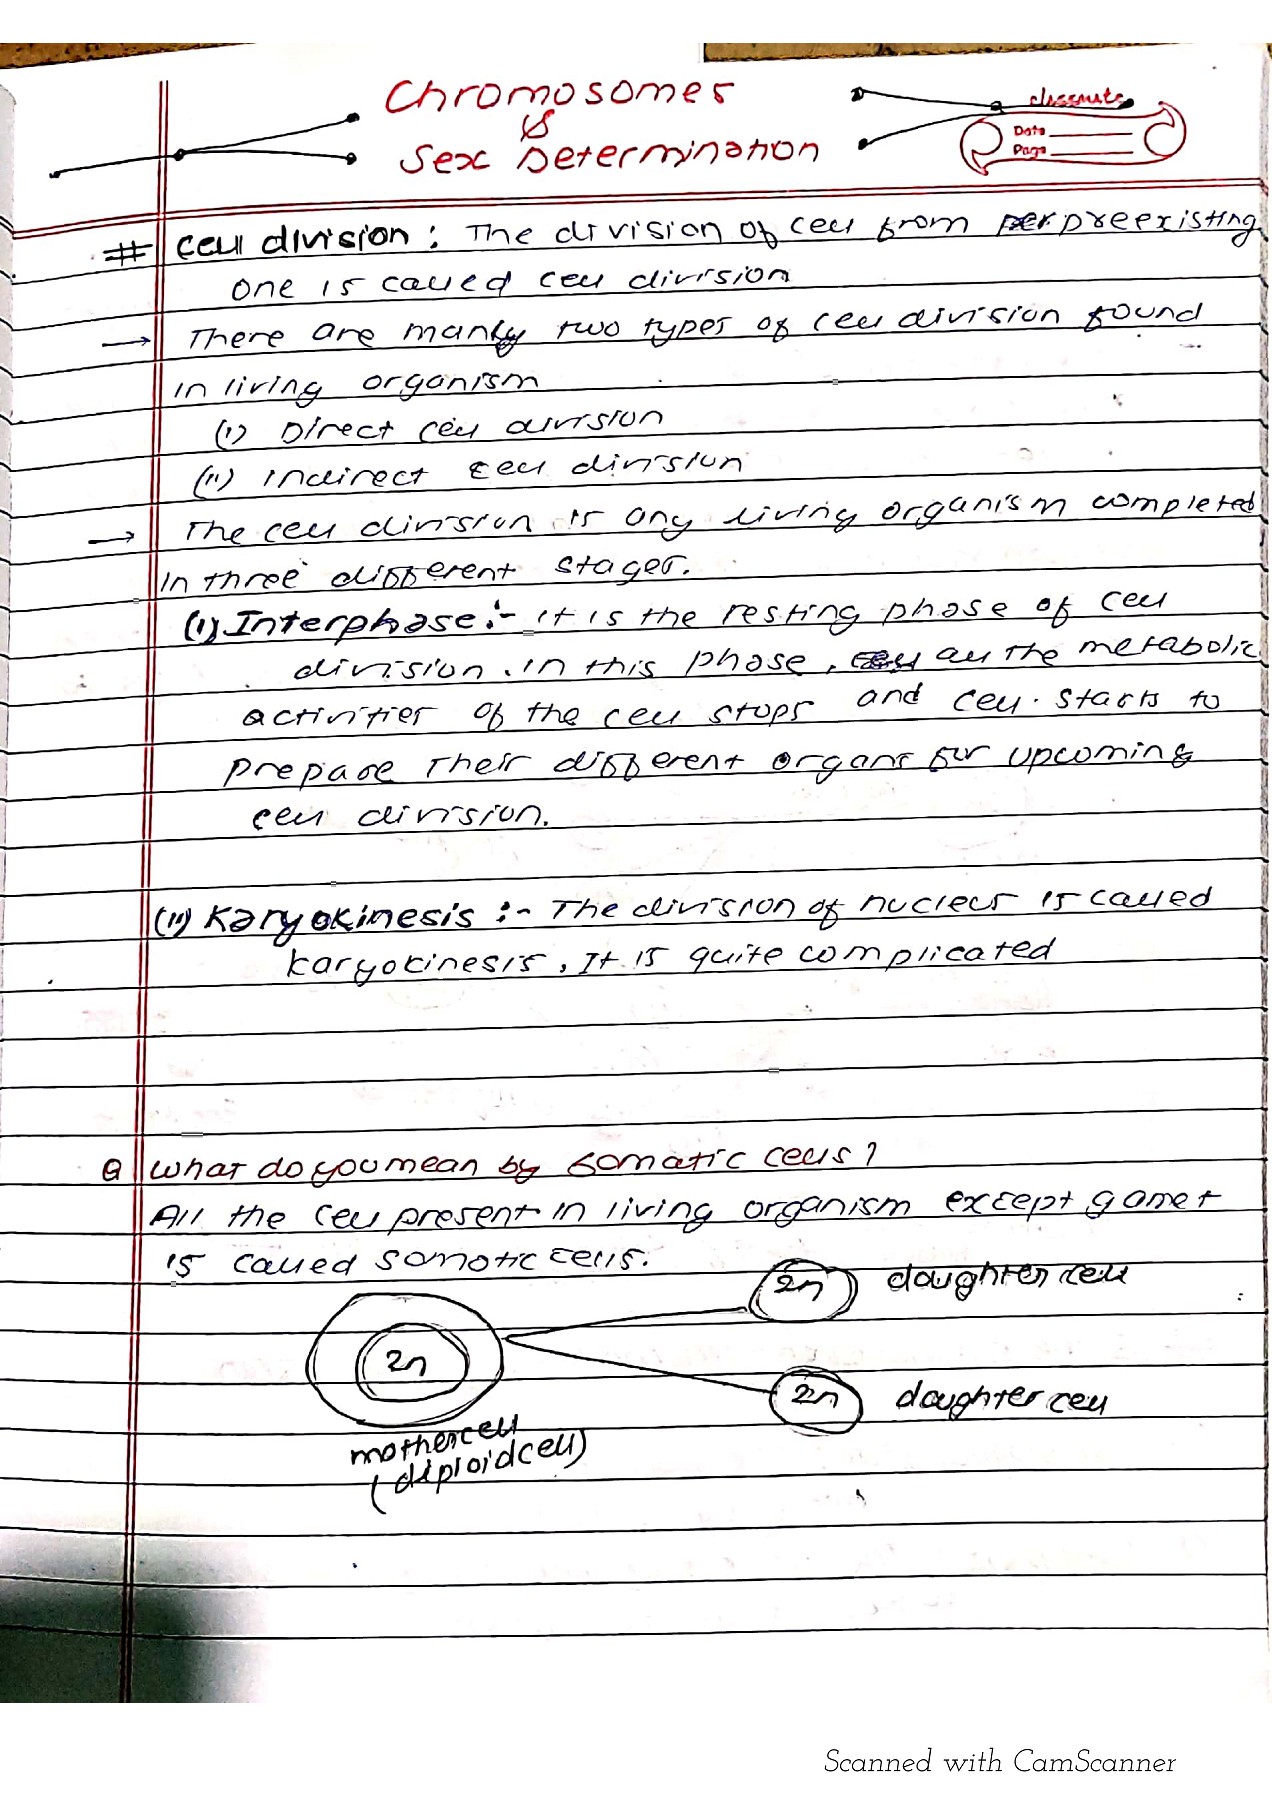 Chromosomes
&
Sex Determination
classmate
Date
Page
# Cell division : The division of cell from per preexisting
one is called cell division
→ There are manly two types of cell division found
in living organism
(i) Direct cell division
(ii) Indirect cell division
→ The cell division is any living organism completed
in three different stages.
(i) Interphase :- it is the resting phase of cell
division. in this phase, cell all the metabolic
activities of the cell stops and cell starts to
prepare their different organs for upcoming
cell division.
(ii) Karyokinesis :- The division of nucleus is called
karyokinesis, It is quite complicated
Q What do you mean by somatic cells?
All the cell present in living organism except gamet
is called somatic cells.
2n daughter cell
2n
2n daughter cell
mother cell
(diploid cell)
Scanned with CamScanner